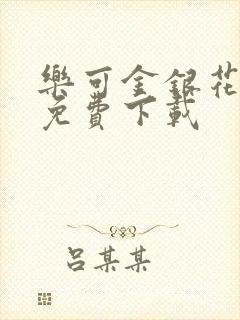 樂可金銀花
免費下載
呂某某